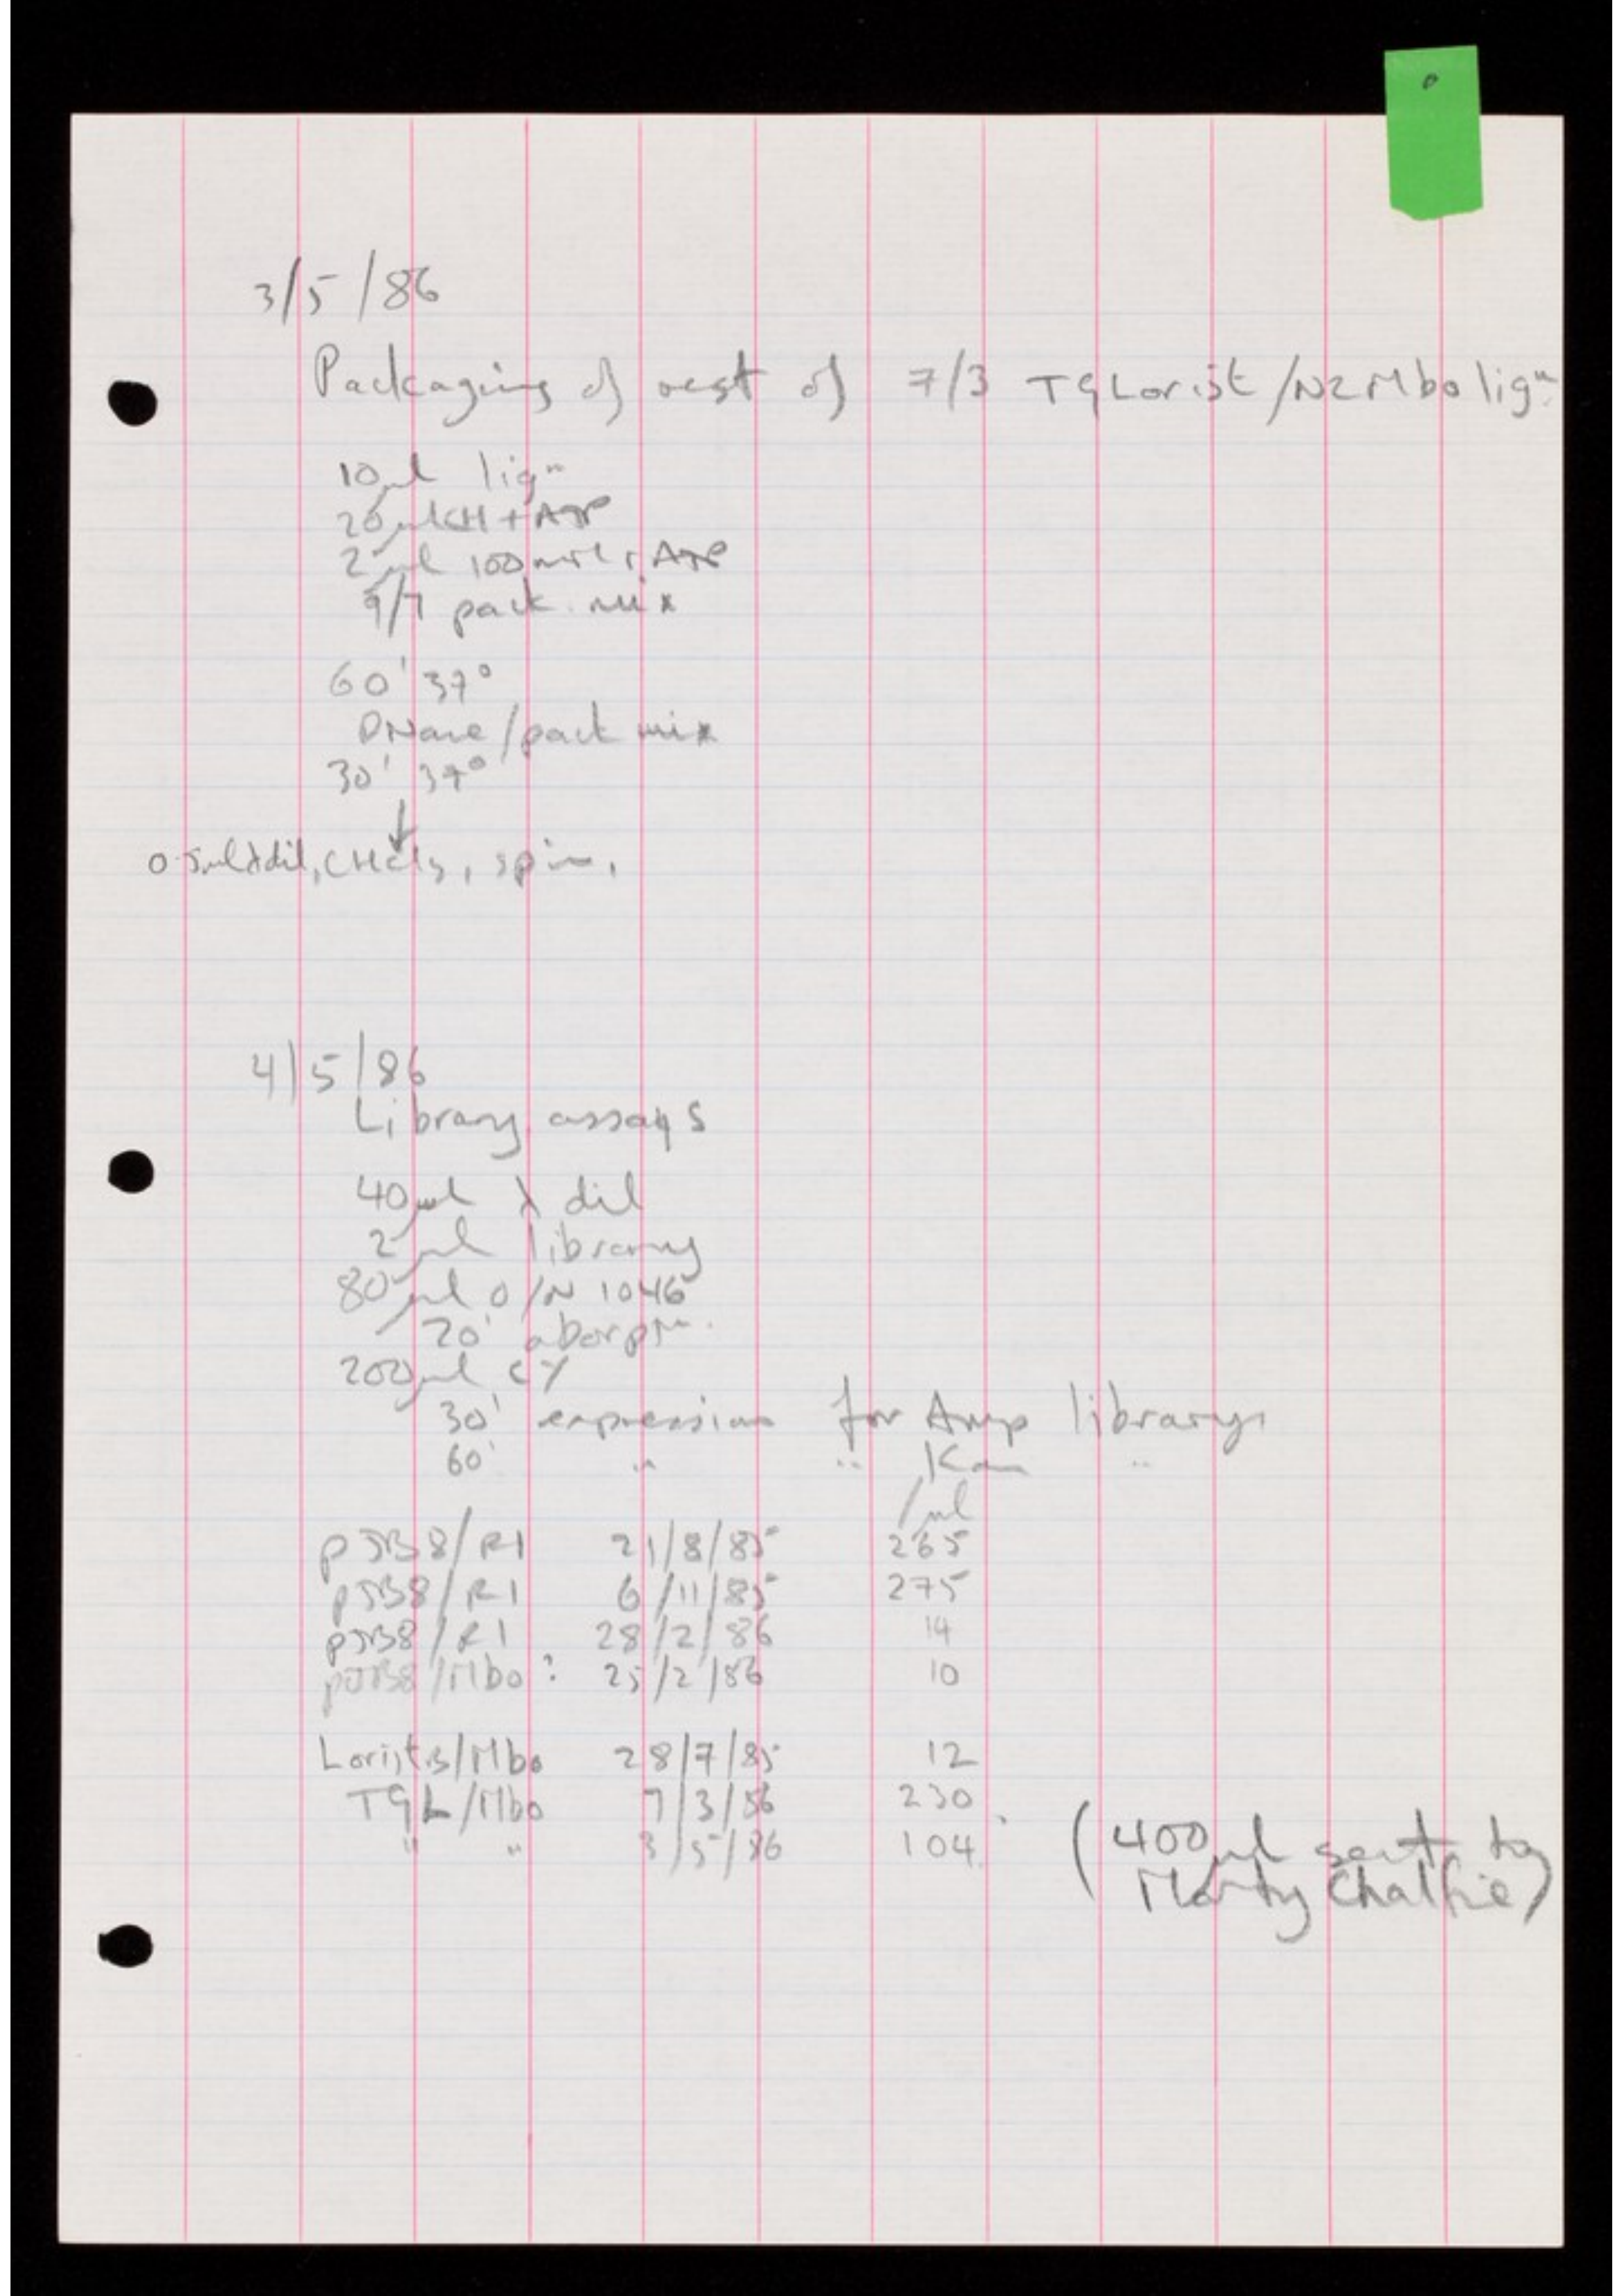 3/5/86
Packaging of rest of 7/3 T9Lorist/N2Mbo ligⁿ.
10μl ligⁿ
20μl CH + ATP
2μl 100mM ATP
9/7 pack. mix
60' 37°
DNase/pack mix
30' 37°
↓
0.5ml λdil, CHCl3, spin.
4/5/86
Library assays
40μl λ dil
2μl library
80μl O/N 1046
20' aborptⁿ.
200μl CY
30' expression for Amp library
60' " " Kan "
/μl
pJB8/R1 21/8/85 265
pJB8/R1 6/11/85 275
pJB8/R1 28/2/86 14
pJB8/Mbo? 25/2/86 10
LoristB/Mbo 28/7/85 12
T9L/Mbo 7/3/86 230
" " 3/5/86 104 (400μl sent to
Marty Chalfie)